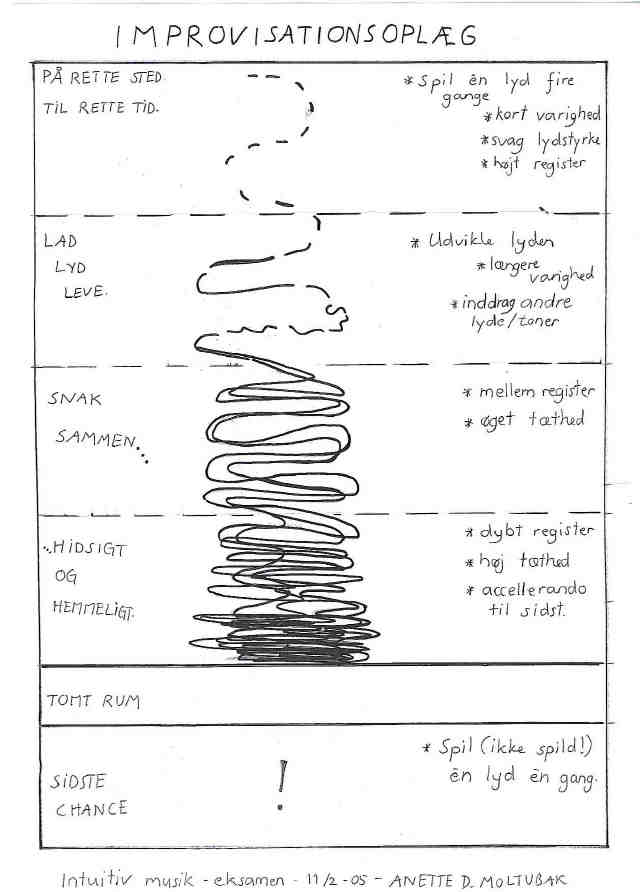 IMPROVISATIONSOPLÆG
PÅ RETTE STED
TIL RETTE TID.
* Spil èn lyd fire
gange
* kort varighed
* svag lydstyrke
* højt register
LAD
LYD
LEVE.
* Udvikle lyden
* længere
varighed
* inddrag andre
lyde/toner
SNAK
SAMMEN...
* mellem register
* øget tæthed
...HIDSIGT
OG
HEMMELIGT.
* dybt register
* høj tæthed
* accellerando
til sidst.
TOMT RUM
SIDSTE
CHANCE
!
* Spil (ikke spild!)
èn lyd èn gang.
Intuitiv musik - eksamen - 11/2-05 - ANETTE D. MOLTUBAK